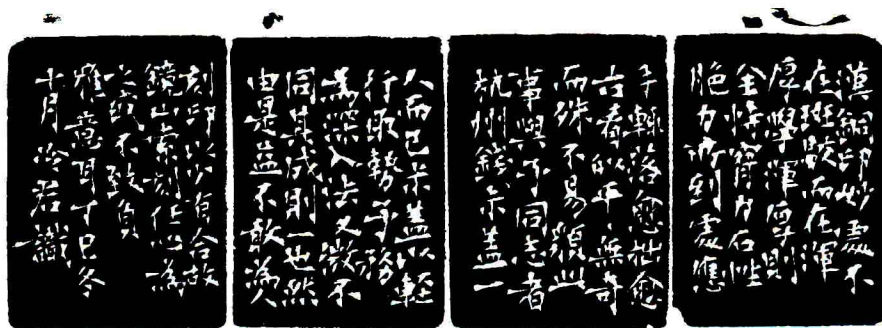 漢銅印妙處不
在斑駁而在渾
厚學渾厚則
全恃腕力石性
脆力所到處應
手輒落愈拙愈
古看似平平無奇
而殊不易貌此
事與予同志者
杭州錢叔蓋一
人而已叔蓋以輕
行取勢予務
為深入法又微不
同其成則一也然
由是益不敢為人
刻印以少有合故
鏡山索刻任心為
之或不致負
雅意耳丁巳冬
十月冷君識